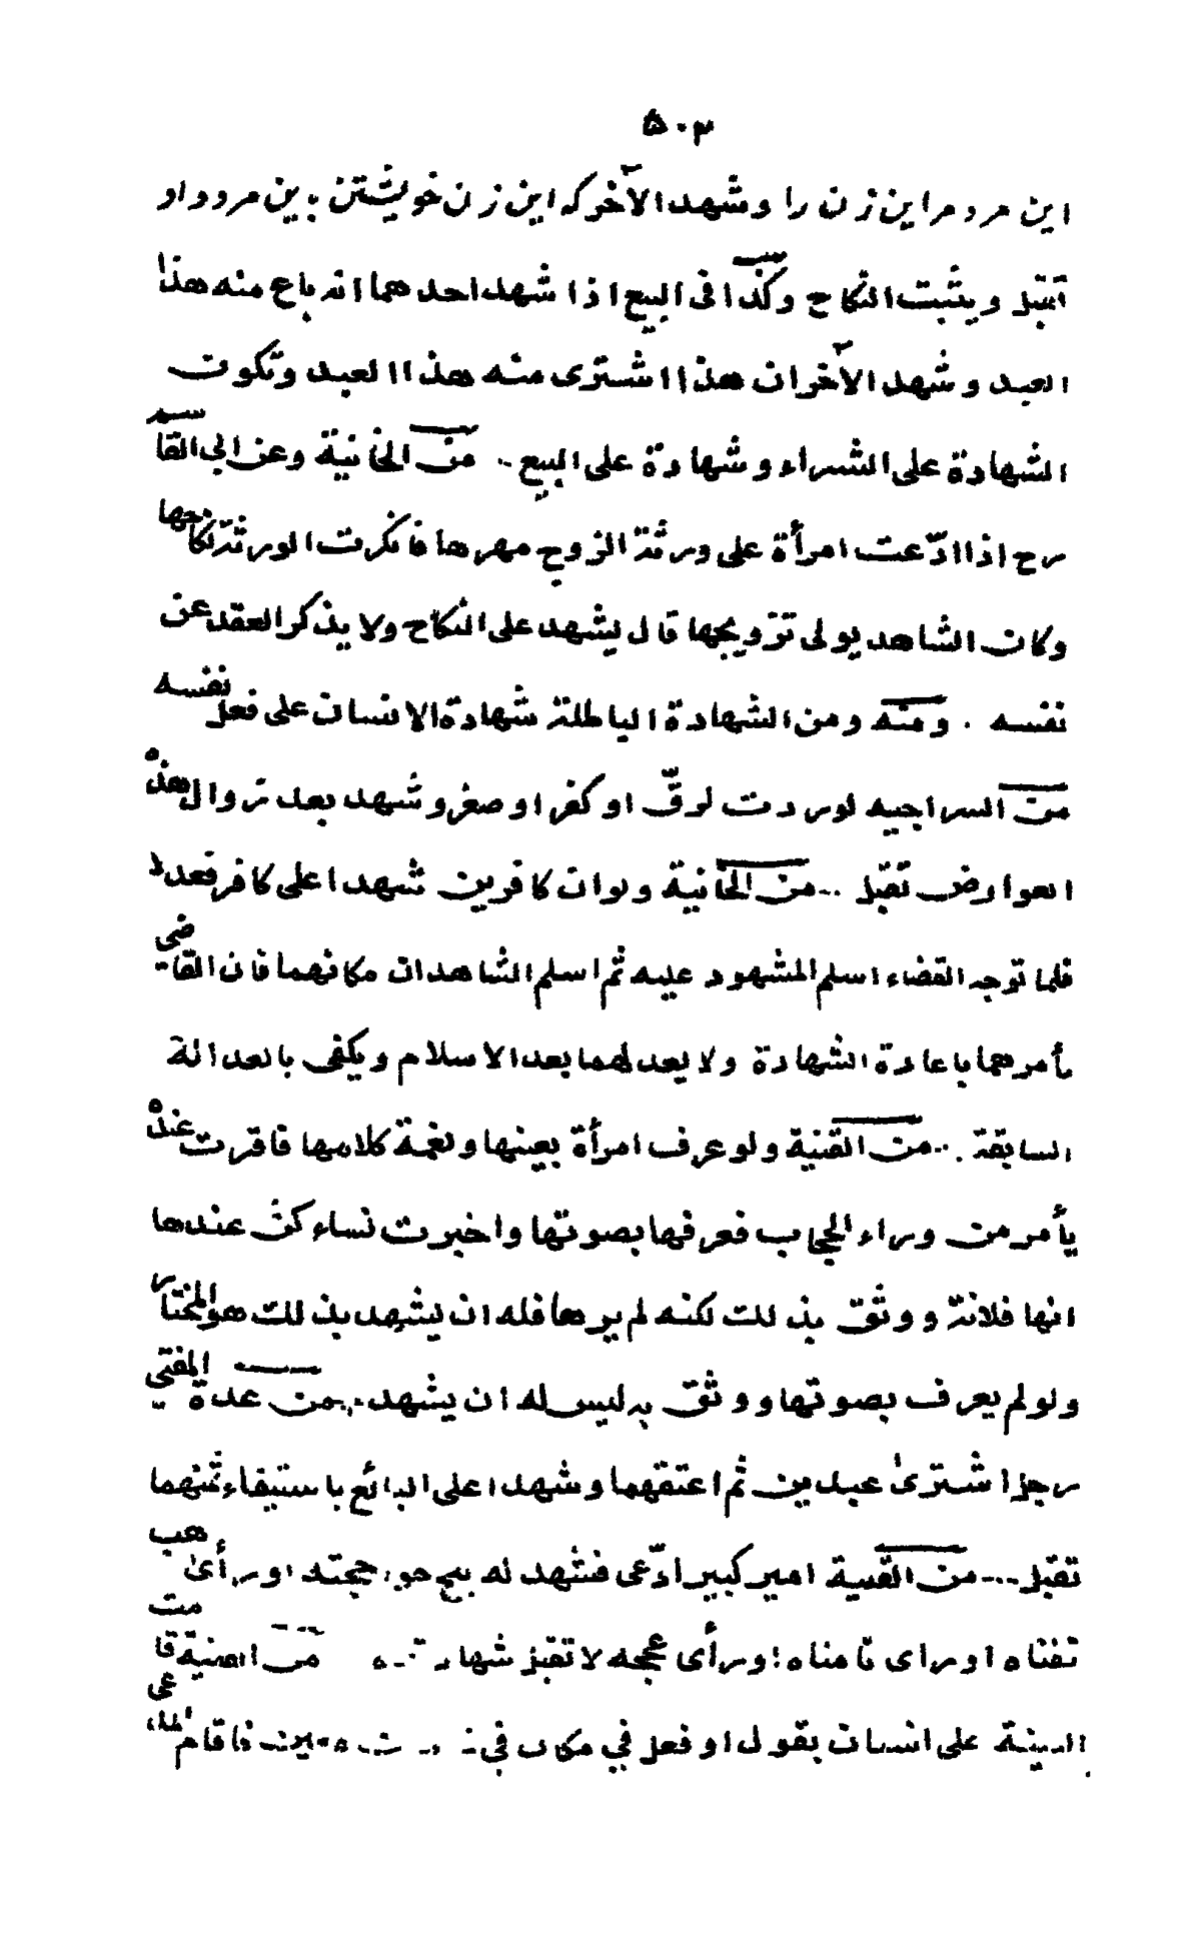 ٥٠٣
این مرد مراین زن را وشهد الآخر که این زن خویشتن باین مرد داد
تقبل ويثبت النكاح وكذا فى البيع اذا شهد احدهما انه باع منه هذا
العبد وشهد الآخر ان هذا اشترى منه هذا العبد وتكون
الشهادة على الشراء وشهادة على البيع .. من الخانية وعن ابى القاسم
رح اذا ادّعت امرأة على ورثة الزوج مهرها فانكرت الورثة نكاحها
وكان الشاهد يولى تزويجها قال يشهد على النكاح ولا يذكر العقد عن
نفسه . ومنه ومن الشهادة الباطلة شهادة الانسان على فعل نفسه
من السراجيه لو ردت لرقّ او كفر او صغر وشهد بعد زوال هذه
العوارض تقبل .. من الخانية ولوان كافرين شهدا على كافر فعدلا
فلما توجه القضاء اسلم المشهود عليه ثم اسلم الشاهدان مكانهما فان القاضى
يأمرهما باعادة الشهادة ولا يعدلهما بعد الاسلام ويكفى بالعدالة
السابقة .. من القنية ولو عرف امرأة بعينها ونغمة كلامها فاقرت عنده
يأمر من وراء الحجاب فعرفها بصوتها واخبرت نساء كن عندها
انها فلانة ووثق بذلك لكنه لم يرها فله ان يشهد بذلك هو المختار
ولو لم يعرف بصوتها ووثق به ليس له ان يشهد .. من عدة المفتي
رجل اشترى عبدين ثم اعتقهما وشهدا على البائع باستيفاء ثمنهما
تقبل ... من القنية امير كبير ادّعى فشهد له حجته او رأى
او رأى لا تقبل من القنية
البينة على انسان بقول او فعل في مكان فاقام